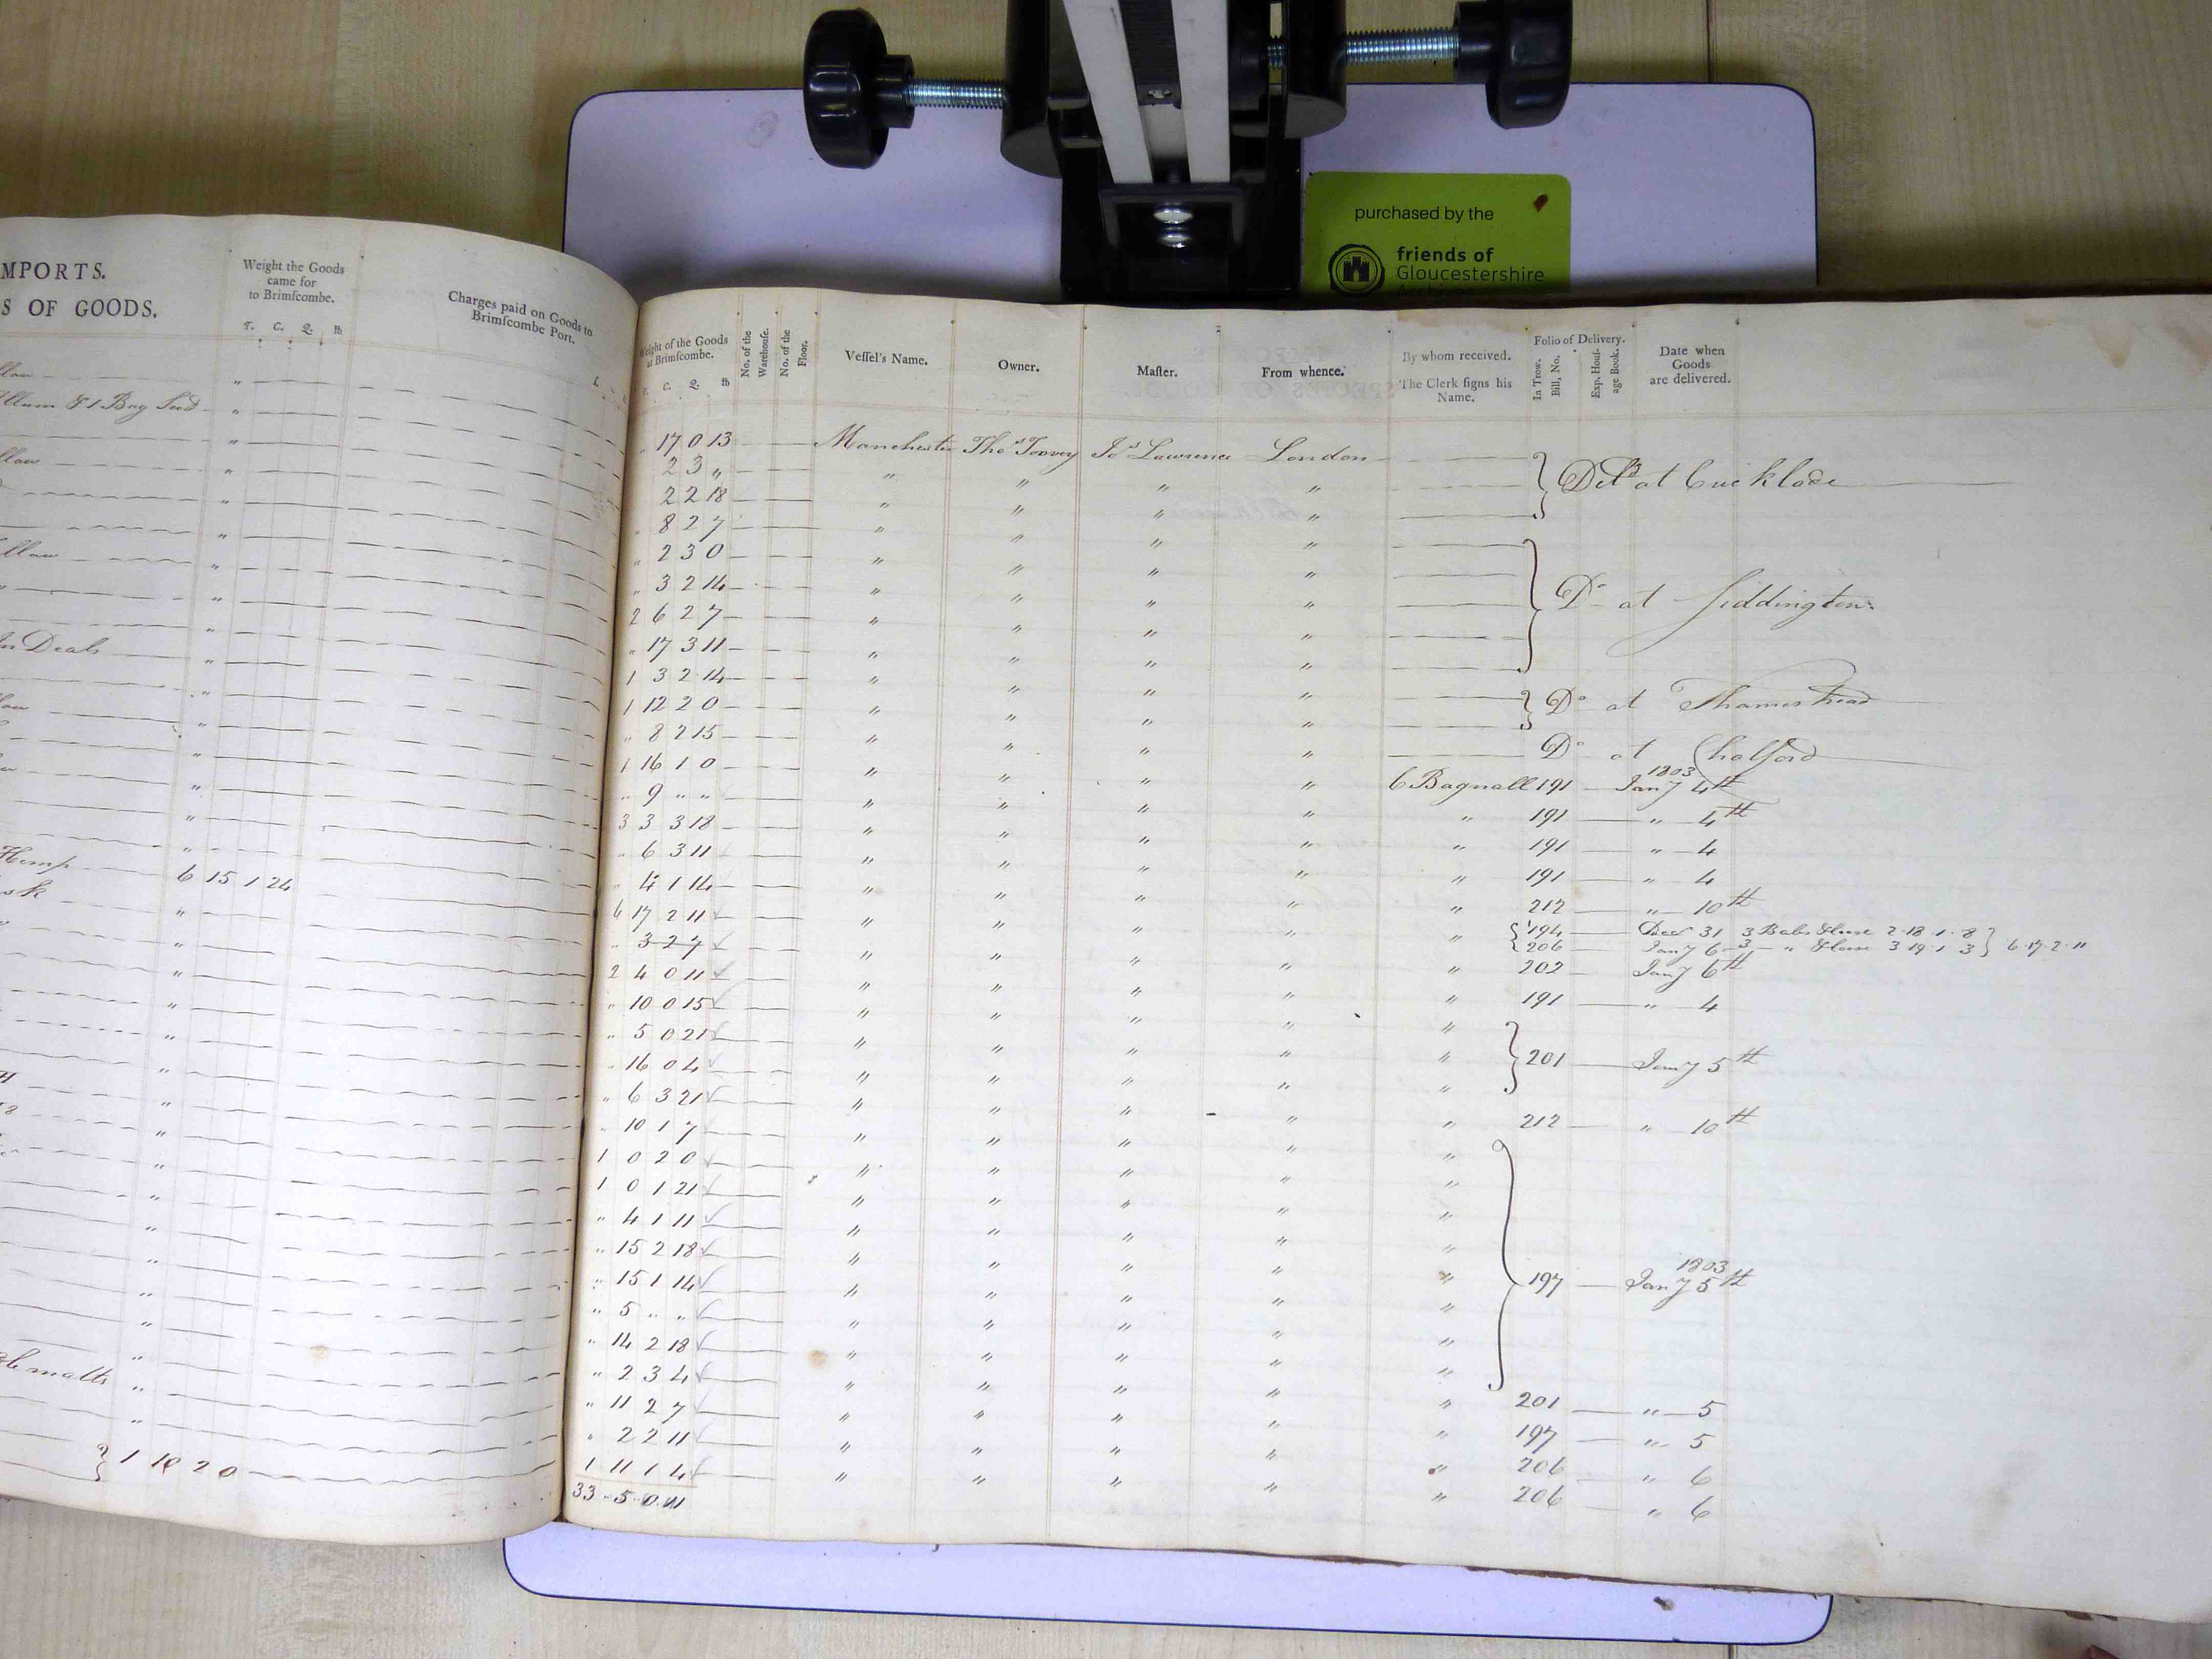 purchased by the
friends of
Gloucestershire
MPORTS.
S OF GOODS.
Weight the Goods
came for
to Brimſcombe.
T. C. Q. lb
Charges paid on Goods to
Brimſcombe Port.
£.
llum & 1 Bag Seed
Deals
Hemp 6 15 1 24
matts
} 1 18 2 0
Weight of the Goods
at Brimſcombe.
T. C. Q. lb
No. of the
Warehouſe.
No. of the
Floor.
Veſſel's Name.
Owner.
Maſter.
From whence.
By whom received.
The Clerk ſigns his
Name.
Folio of Delivery.
In Trow.
Bill, No.
Exp. Houſ-
age Book.
Date when
Goods
are delivered.
" 17 0 13 Manchester Thos Tovey Js Lawrence London
2 3 " " " " " } Deld at Cricklade
2 2 18 " " " "
" 8 2 7 " " " "
" 2 3 0 " " " "
" 3 2 14 " " " " } Do at Siddington
2 6 2 7 " " " "
" 17 3 11 " " " "
1 3 2 14 " " " "
1 12 2 0 " " " " } Do at Thames head
" 8 2 15 " " " " Do at Chalford
1803
1 16 1 0 " " " " C Bagnall 191 Jany 4th
" 9 " " " " " " " 191 " 4th
3 3 3 18 " " " " " 191 " 4
" 6 3 11 " " " " " 191 " 4
" 4 1 14 " " " " " 212 " 10th
6 17 2 11 " " " " " { 194 Decr 31 3 Bales Hemp 2 . 18 . 1 . 8 }
{ 206 Jany 6 3 " Hemp 3 19 . 1 . 3 } 6 . 17 . 2 . 11
" 3 2 7 " " " " " 202 Jany 6th
2 4 0 11 " " " " " 191 " 4
" 10 0 15 " " " " "
" 5 0 21 " " " " " } 201 Jany 5th
" 16 0 4 " " " " "
" 6 3 21 " " " " " 212 " 10th
" 10 1 7 " " " " "
1 0 2 0 " " " " "
1 0 1 21 " " " " "
" 4 1 11 " " " " "
1803
" 15 2 18 " " " " " } 197 Jany 5th
" 15 1 14 " " " " "
" 5 " " " " " " "
" 14 2 18 " " " " "
" 2 3 4 " " " " " 201 " 5
" 11 2 7 " " " " " 197 " 5
" 2 2 11 " " " " " 206 " 6
1 11 1 4 " " " " " 206 " 6
33 . 5 . 0 . 11